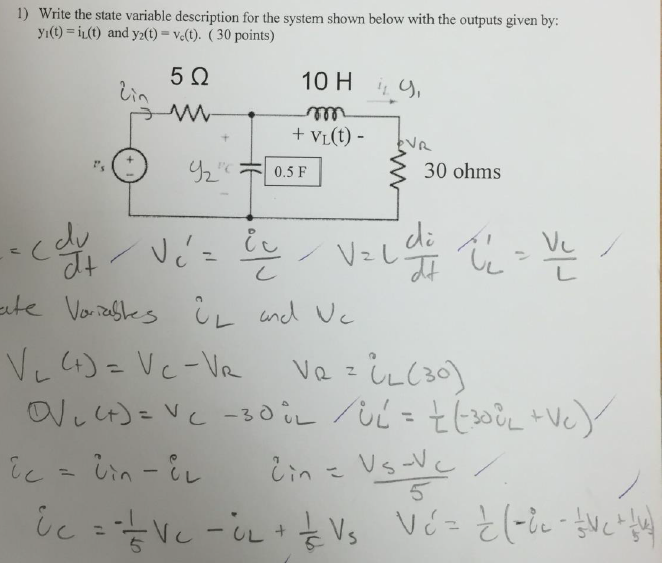 1) Write the state variable description for the system shown below with the outputs given by:
y₁(t) = i_L(t) and y₂(t) = v_c(t). ( 30 points)
5 Ω
10 H
i_in
i_L y₁
+ v_L(t) -
V_R
v_s
+
y₂
0.5 F
30 ohms
= C dv/dt / V_c' = i_c/C / V = L di/dt i_L' = V_L/L /
ate Variables i_L and V_c
V_L(t) = V_c - V_R V_R = i_L(30)
V_L(t) = V_c - 30 i_L / i_L' = 1/L (-30 i_L + V_c) /
i_c = i_in - i_L i_in = V_s - V_c / 5 /
i_c = -1/5 V_c - i_L + 1/5 V_s V_c' = 1/C (-i_L - 1/5 V_c + 1/5 V_s)